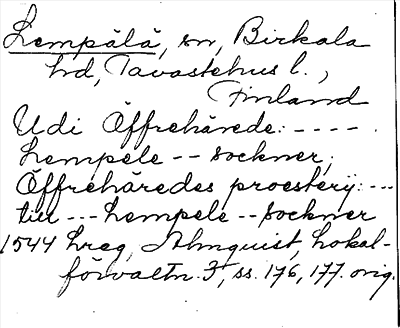 Lempälä, sn, Birkala
hd, Tavastehus l.,
Finland
Udi Öffrehärede: - - - -
Lempele - - sockner,
Öffrehäredes proesterij: - - -
till - - - Lempele - - sockner
1544 hreg, Almquist, Lokal-
förvaltn. 3, ss. 176, 177. orig.